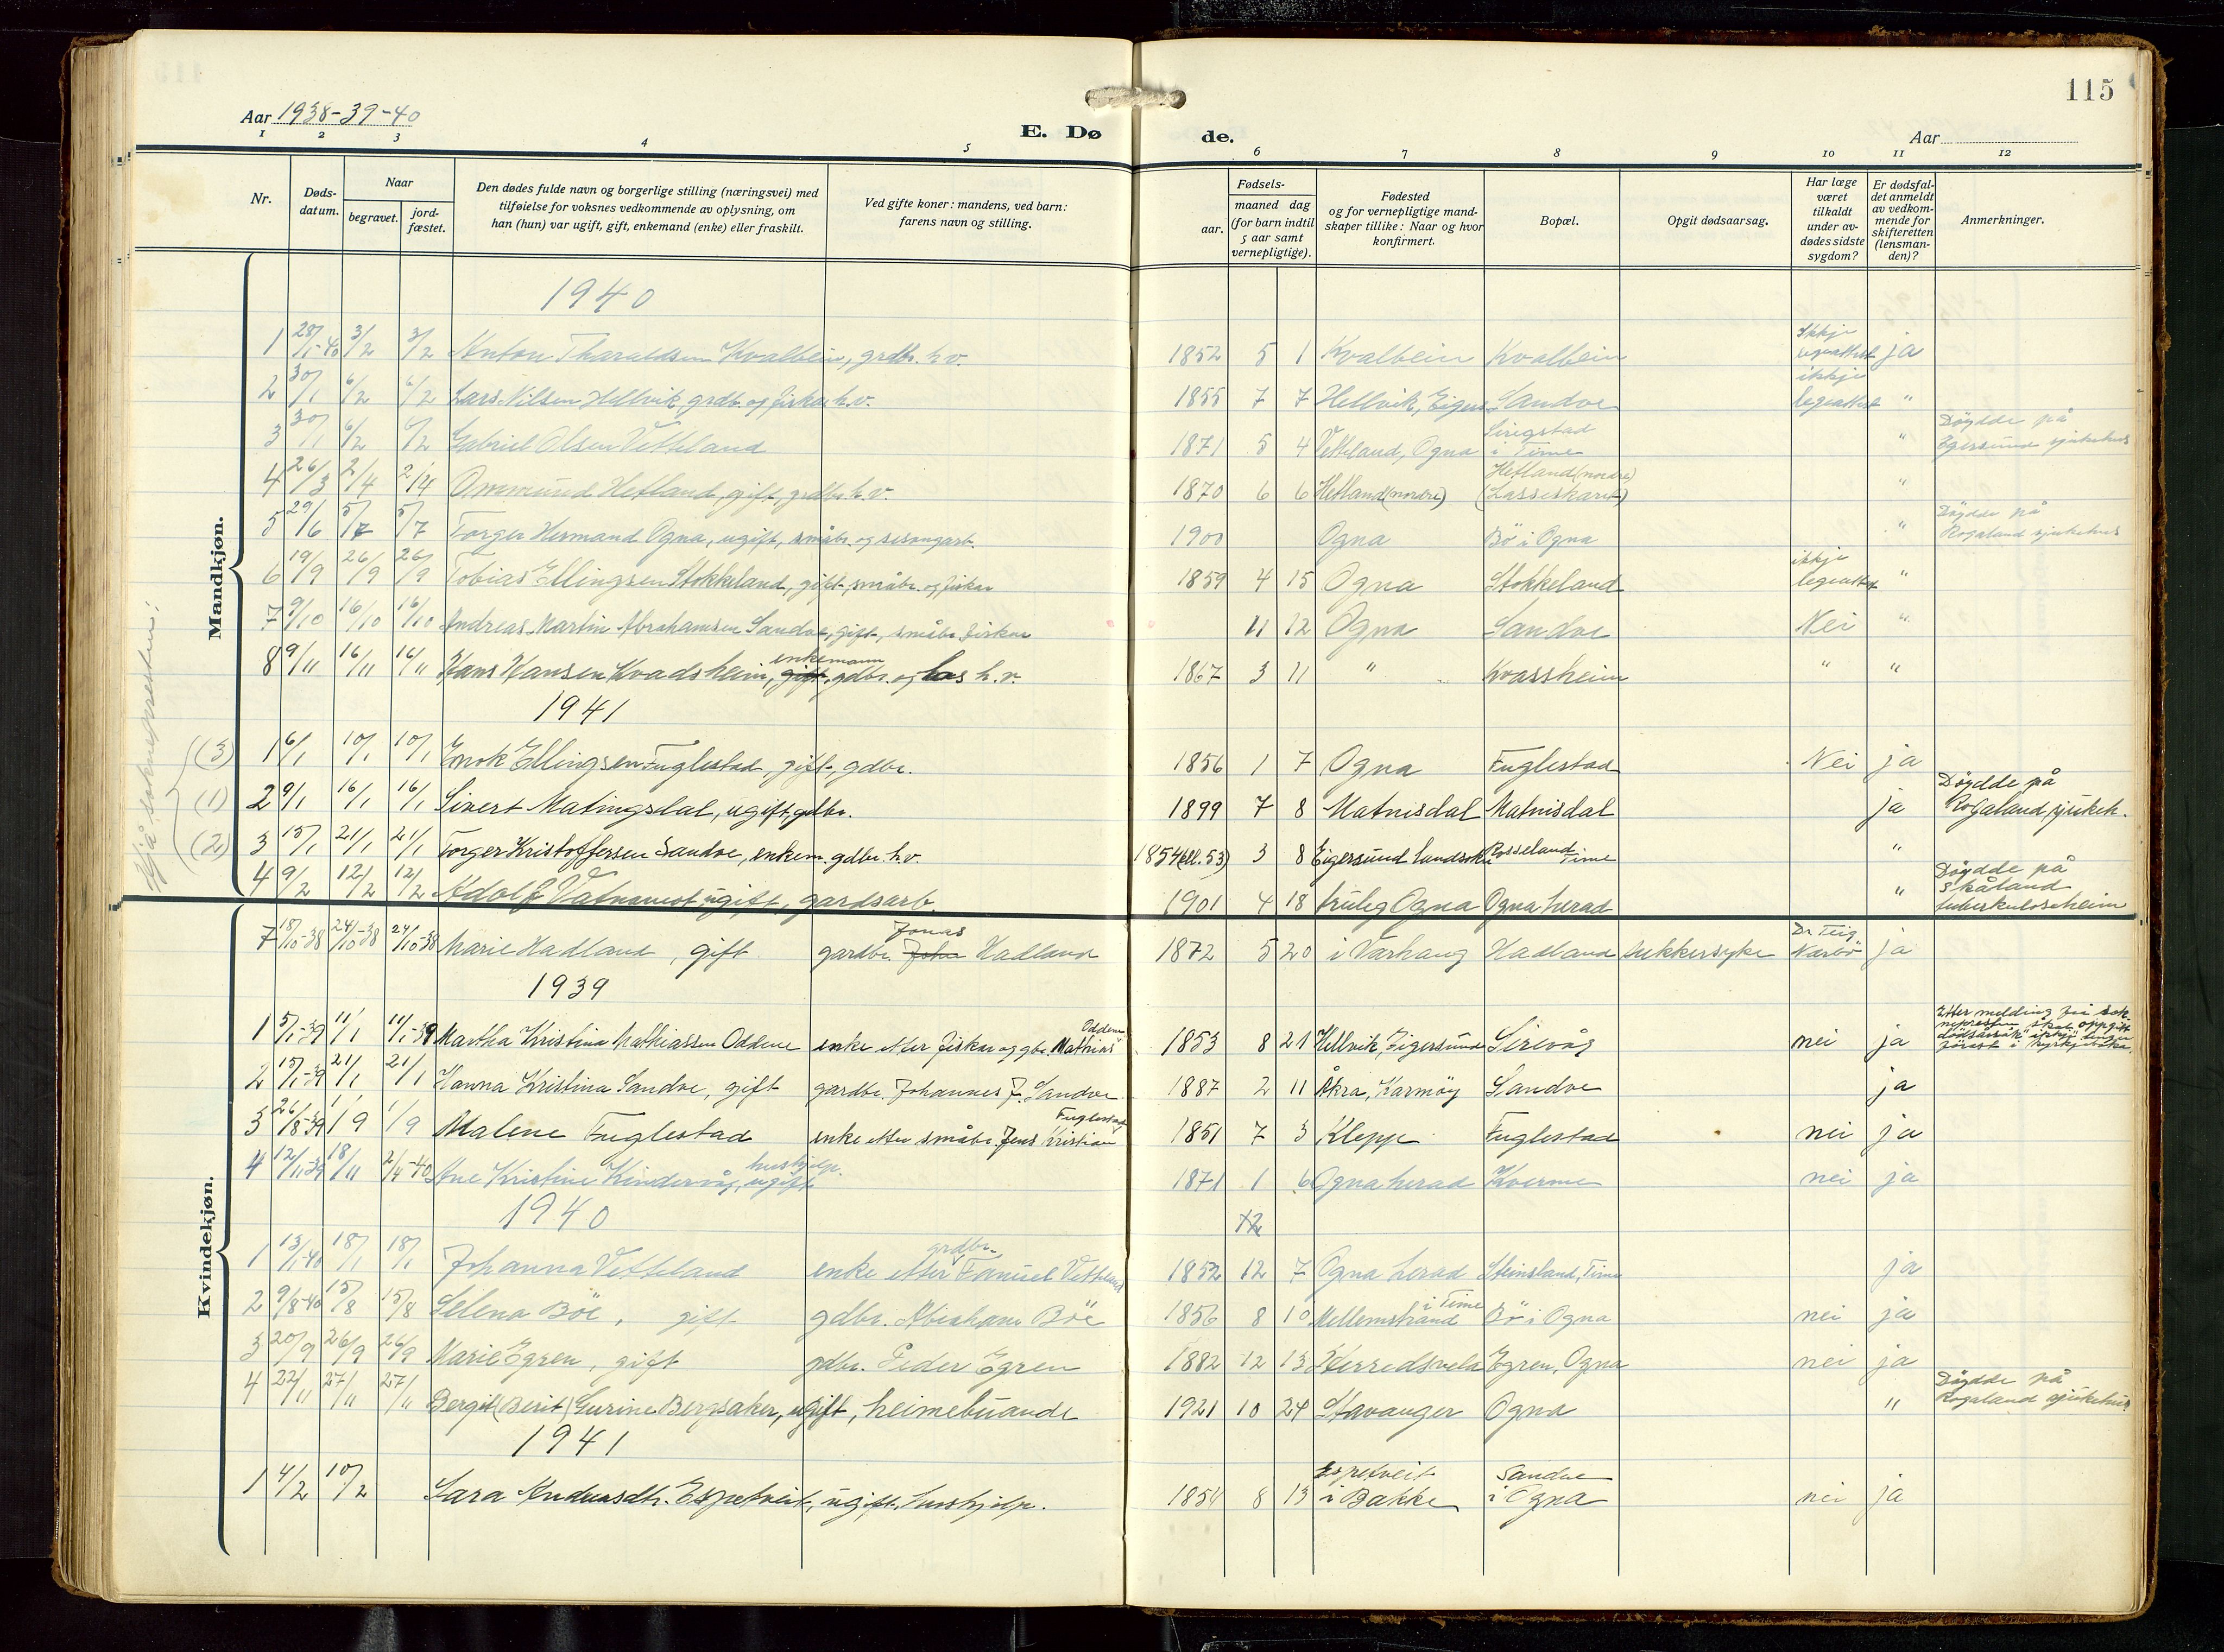 115
Aar 1938-39-40
E. Dø de.
Aar
1 2 3 4 5 6 7 8 9 10 11 12
Nr.
Døds-datum.
Naar
begravet.
jord-fæstet.
Den dødes fulde navn og borgerlige stilling (næringsvei) med
tilføielse for voksnes vedkommende av oplysning, om
han (hun) var ugift, gift, enkemand (enke) eller fraskilt.
Ved gifte koner: mandens, ved barn:
farens navn og stilling.
Fødsels-
aar.
maaned dag
(for barn indtil
5 aar samt
vernepligtige).
Fødested
og for vernepligtige mand-
skaper tillike: Naar og hvor
konfirmert.
Bopæl.
Opgit dødsaarsag.
Har læge
været
tilkaldt
under av-
dødes sidste
sygdom?
Er dødsfal-
det anmeldt
av vedkom-
mende for
skifteretten
(lensman-
den)?
Anmerkninger.
Mandkjøn.
1940
1 28/1-40 3/2 3/2 Anton Tharaldsen Kvalbein, grdbr. k.v. 1852 5 1 Kvalbein Kvalbein Ikkje legeattest ja
2 30/1 6/2 6/2 Lars Nilsen Hellvik grdb. og fiskar k.v. 1855 7 7 Hellvik, Eigers Sandve ikkje legeattest "
3 30/1 6/2 6/2 Gabriel Olsen Vetteland 1871 5 4 Vetteland, Ogna Siregstad i Time " Döydde på Egersund sjukehus
4 26/3 2/4 2/4 Ommund Hetland, gift, grdbr. k.v. 1870 6 6 Hetland (nordre) Hetland (nordre) (Lasseskaret) "
5 29/6 5/7 5/7 Torger Hermand Ogna, ugift, småbr. og sesongarb. 1900 Ogna Bö i Ogna " Döydde på Rogaland sjukehus
6 19/9 26/9 26/9 Tobias Ellingsen Stokkeland, gift, småbr. og fiskar 1859 4 15 Ogna Stokkeland ikkje legeattest "
7 9/10 16/10 16/10 Andreas Martin Abrahamsen Sandve, gift, småbr. fiskar 11 12 Ogna Sandve Nei "
8 9/11 16/11 16/11 Hans Hansen Kvadsheim, gift, enkemann gdbr. og los k.v. 1867 3 11 " Kvassheim " "
1941
(3) 1 6/1 10/1 10/1 Enok Ellingsen Fuglestad, gift, gdbr. 1856 1 7 Ogna Fuglestad Nei ja
(1) 2 9/1 16/1 16/1 Sivert Matingsdal, ugift, gdbr. 1899 7 8 Matnisdal Matnisdal ja Döydde på Rogaland sjukeh.
(2) 3 15/1 21/1 21/1 Torger Kristoffersen Sandve, enkem. gdbr. k.v. 1854 (ell. 53) 3 8 Eigersund landsokn Rosseland Time "
4 9/2 12/2 12/2 Adolf Vatnamot ugift, gardsarb. 1901 4 18 truleg Ogna Ogna herad " Döydde på Skåland tuberkuloseheim
Kvindekjøn.
7 18/10-38 24/10-38 24/10-38 Marie Hadland, gift gardbr. John Jonas Hadland 1872 5 20 i Varhaug Hadland sukkersyke Dr Teig Nærbö ja
1939
1 5/1-39 11/1 11/1-39 Martha Kristina Mathiassen Oddene enke etter fiskar og gbr. Mathias Oddene 1853 8 21 Hellvik, Eigersund Sirevåg nei ja Etter melding frå sok- nepresten skal oppgitt dödsårsak ikkje lenger förast i kyrkjeboka.
2 15/1-39 21/1 21/1 Hanna Kristina Sandve, gift gardbr. Johannes J. Sandve 1887 2 11 Åkra, Karmöy Sandve ja
3 26/8-39 1/9 1/9 Malene Fuglestad enke etter småbr. Jens Kristian Fuglestad 1851 7 3 Klepp Fuglestad nei ja
4 12/11-39 18/11 2/4-40 Ane Kristine Kindervåg, ugift hushjelp. 1871 1 6 Ogna herad Kverme nei ja
1940
12
1 13/1-40 18/1 18/1 Johanna Vetteland enke etter grdbr. Fanuel Vetteland 1852 12 7 Ogna herad Steinsland, Time ja
2 9/8-40 15/8 15/8 Selena Böe, gift gdbr. Abraham Böe 1856 8 10 Mellemstrand i Time Bö i Ogna nei ja
3 20/9 26/9 26/9 Marie Egren, gift gdbr. Peder Egren 1882 12 13 Herredsvela Egren, Ogna nei ja
4 22/11 27/11 27/11 Bergit (Berit) Gurine Bergsaker, ugift, heimebuande 1921 10 24 Stavanger Ogna " Döydde på Rogaland sjukehus
1941
1 4/2 10/2 Sara Andersdtr. Espetveit, ugift, hushjelp. 1851 8 13 Espetveit i Bakke Sandve i Ogna nei ja